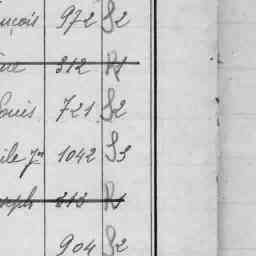 nçois 972 S2
ne 312 R1
Louis 721 S2
ile Jne 1042 S3
seph 313 R1
904 S2